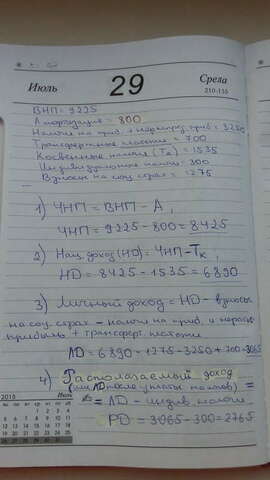 Июль
29
Среда
210-155
ВНП = 9225
Амортизация = 800
Налоги на приб. + нераспр. приб = 3250
Трансфертные платежи = 700
Косвенные налоги (Тк) = 1535
Индивидуальные налоги = 300
Взносы на соц. страх = 1275
1) ЧНП = ВНП - А,
ЧНП = 9225 - 800 = 8425
2) Нац. доход (НD) = ЧНП - Тк
НD = 8425 - 1535 = 6890
3) Личный доход = НD - взносы
на соц. страх - налоги на приб. и нерасп
прибыль + трансферт. платежи
ЛD = 6890 - 1275 - 3250 + 700 = 3065
4) Располагаемый доход
(или ЛD после уплаты налогов) =
= ЛD - индив. налоги
РD = 3065 - 300 = 2765
2015
Июль